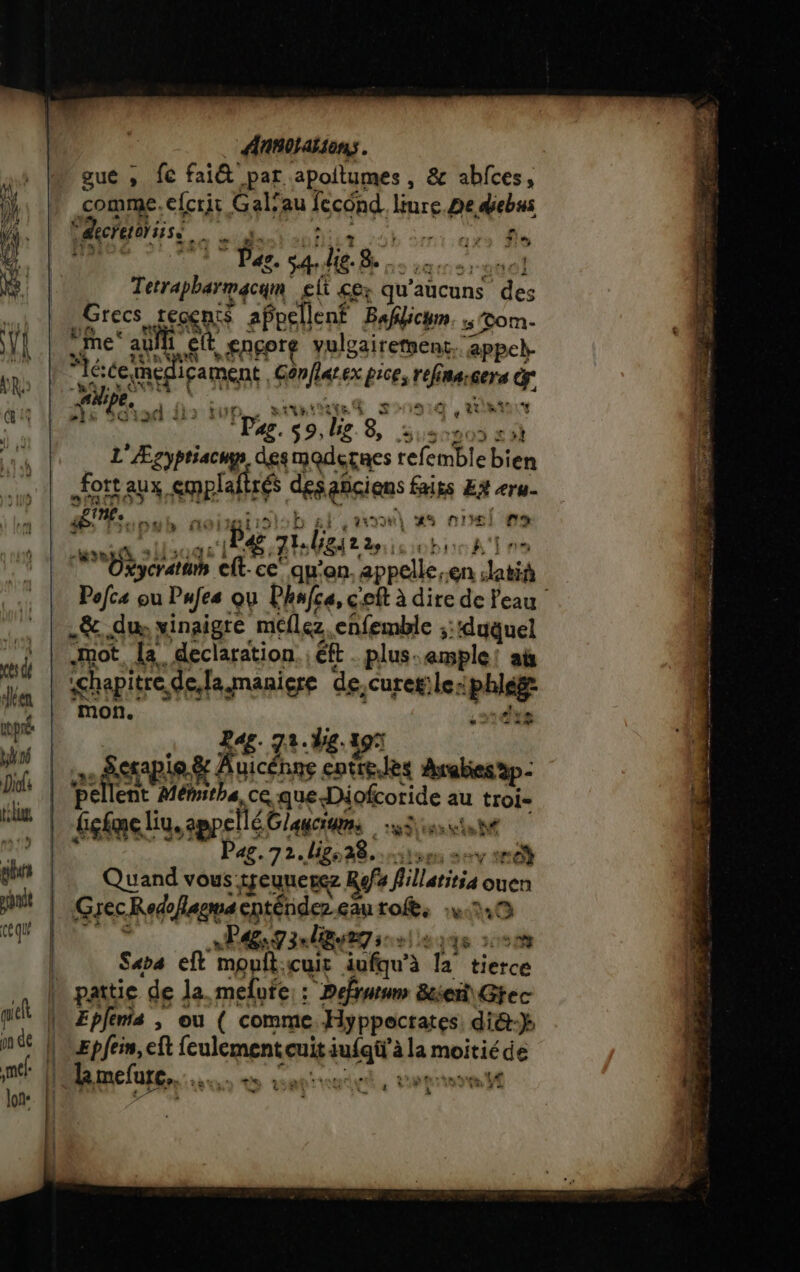 Annotations.
gue ; ſe faict par apoſtumes, & abſces,
comme eſcrit Galꝰau ſecond liure De diebus
decretoriis.
Pag. 54. lig. 8.
Tetrapharmacum eſt ce, qu'aucuns des
Grecs recents appellent Baſilicum, com-
me auſſi eſt encore vulgairement appel-
lé: ce medicament Conflat ex pice, reſina, cera &
adipe.
Pag. 59. lig. 8.
L'Ægyptiacum, des modernes reſemble bien
fort aux emplaſtrés des anciens faits Ex æru-
gine.
Pag. 71. lig. 12.
Oxycratum eſt ce qu'on appelle, en latin
Poſca ou Puſca ou Phuſca, c'eſt à dire de l'eau
& du vinaigre meſlez enſemble ; duquel
mot la declaration eſt plus ample au
chapitre de la maniere de curer le phleg-
mon.
Pag. 72. lig. 19.
Serapio & Auicenne entre les Arabes ap-
pellent Memitha, ce que Dioſcoride au troi-
ſieſme liu. appellé Glaucium.
Pag. 72. lig. 28.
Quand vous treuuerez Roſa ſtillatitia ou en
Grec Rodoſtagma entendez eau roſe.
Pag. 73. lig. 27.
Sapa eſt mouſt cuit iuſqu'à la tierce
partie de la meſure : Defrutum & en Grec
Epſema, ou ( comme Hyppocrates dict )
Epſein, eſt ſeulement cuit iuſqu'à la moitié de
la meſure.